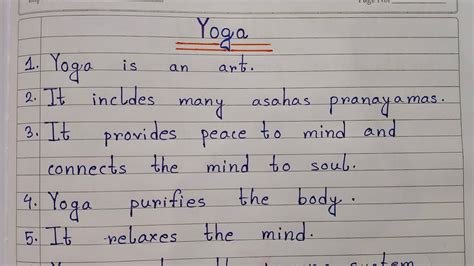 Page No.
Yoga
1. Yoga is an art.
2. It incldes many asahas pranayamas.
3. It provides peace to mind and
connects the mind to soul.
4. Yoga purifies the body.
5. It relaxes the mind.
system